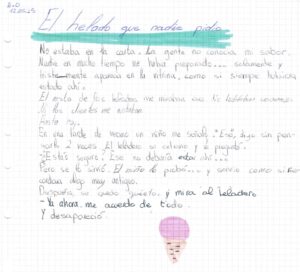 El helado que nadie pidió
No estaba en la carta. La gente no conocía mi sabor.
Nadie en mucho tiempo me había preparado... solamente y
tristemente aparecía en la vitrina, como si siempre hubiera
estado ahí.
El resto de los helados me miraban
Ni los clientes me notaban.
Hasta hoy.
En una tarde de verano un niño me señaló, "Ese", dijo sin pen-
sarlo 2 veces. El heladero se extrañó y le preguntó:
-"¿Estás seguro? Ese no debería estar ahí...
Pero se lo sirvió. El niño lo probó... y sonrió como si re-
cordara algo muy antiguo.
Después, se quedó quieto, y miró al heladero
-Ya ahora, me acuerdo de todo.
Y desapareció.